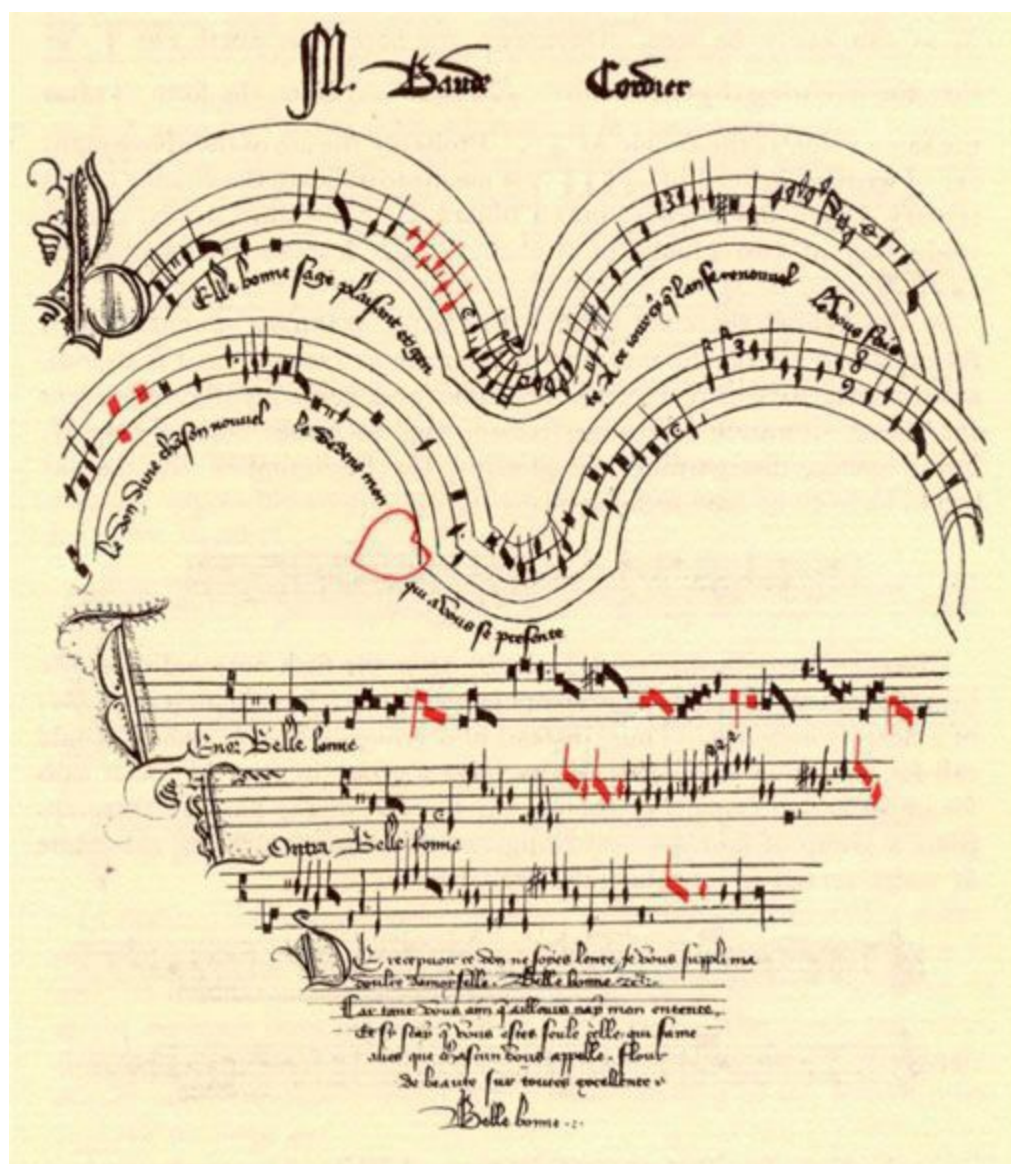 M. Baude Cordier
BElle bonne sage plaisant et gen
te A ce jour q̃ lan se renouvel
le vous fais
le don dune chãson nouvel
le Dedens mon
qui a vous se presente
Tenor Belle bonne
Contra Belle bonne
De recepvoir ce don ne soyes lente, Je vous suppli ma
doulce damoyselle. Belle bonne
Car tant vous aim q̃ aillours nay mon entente,
Et sy scay q̃ vous estes seule celle qui fame
aves que chascun vous appelle. flour
de beaute sur toutes excellente
Belle bonne